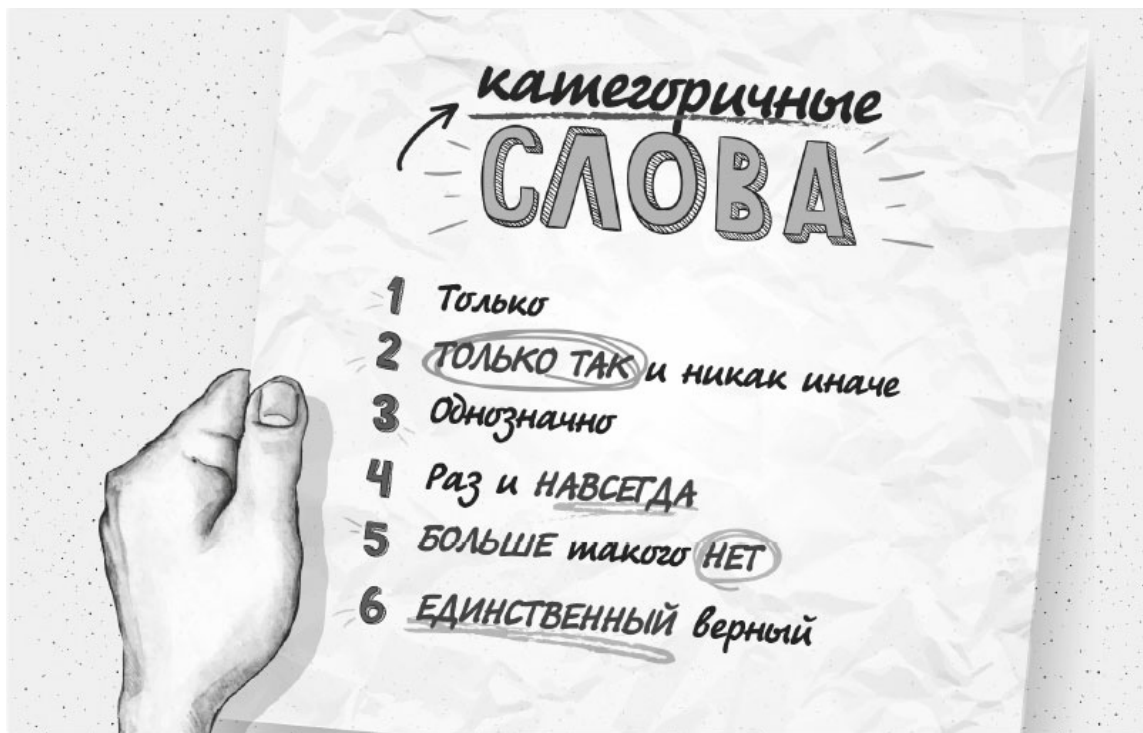 категоричные
СЛОВА
1 Только
2 ТОЛЬКО ТАК и никак иначе
3 Однозначно
4 Раз и НАВСЕГДА
5 БОЛЬШЕ такого НЕТ
6 ЕДИНСТВЕННЫЙ верный